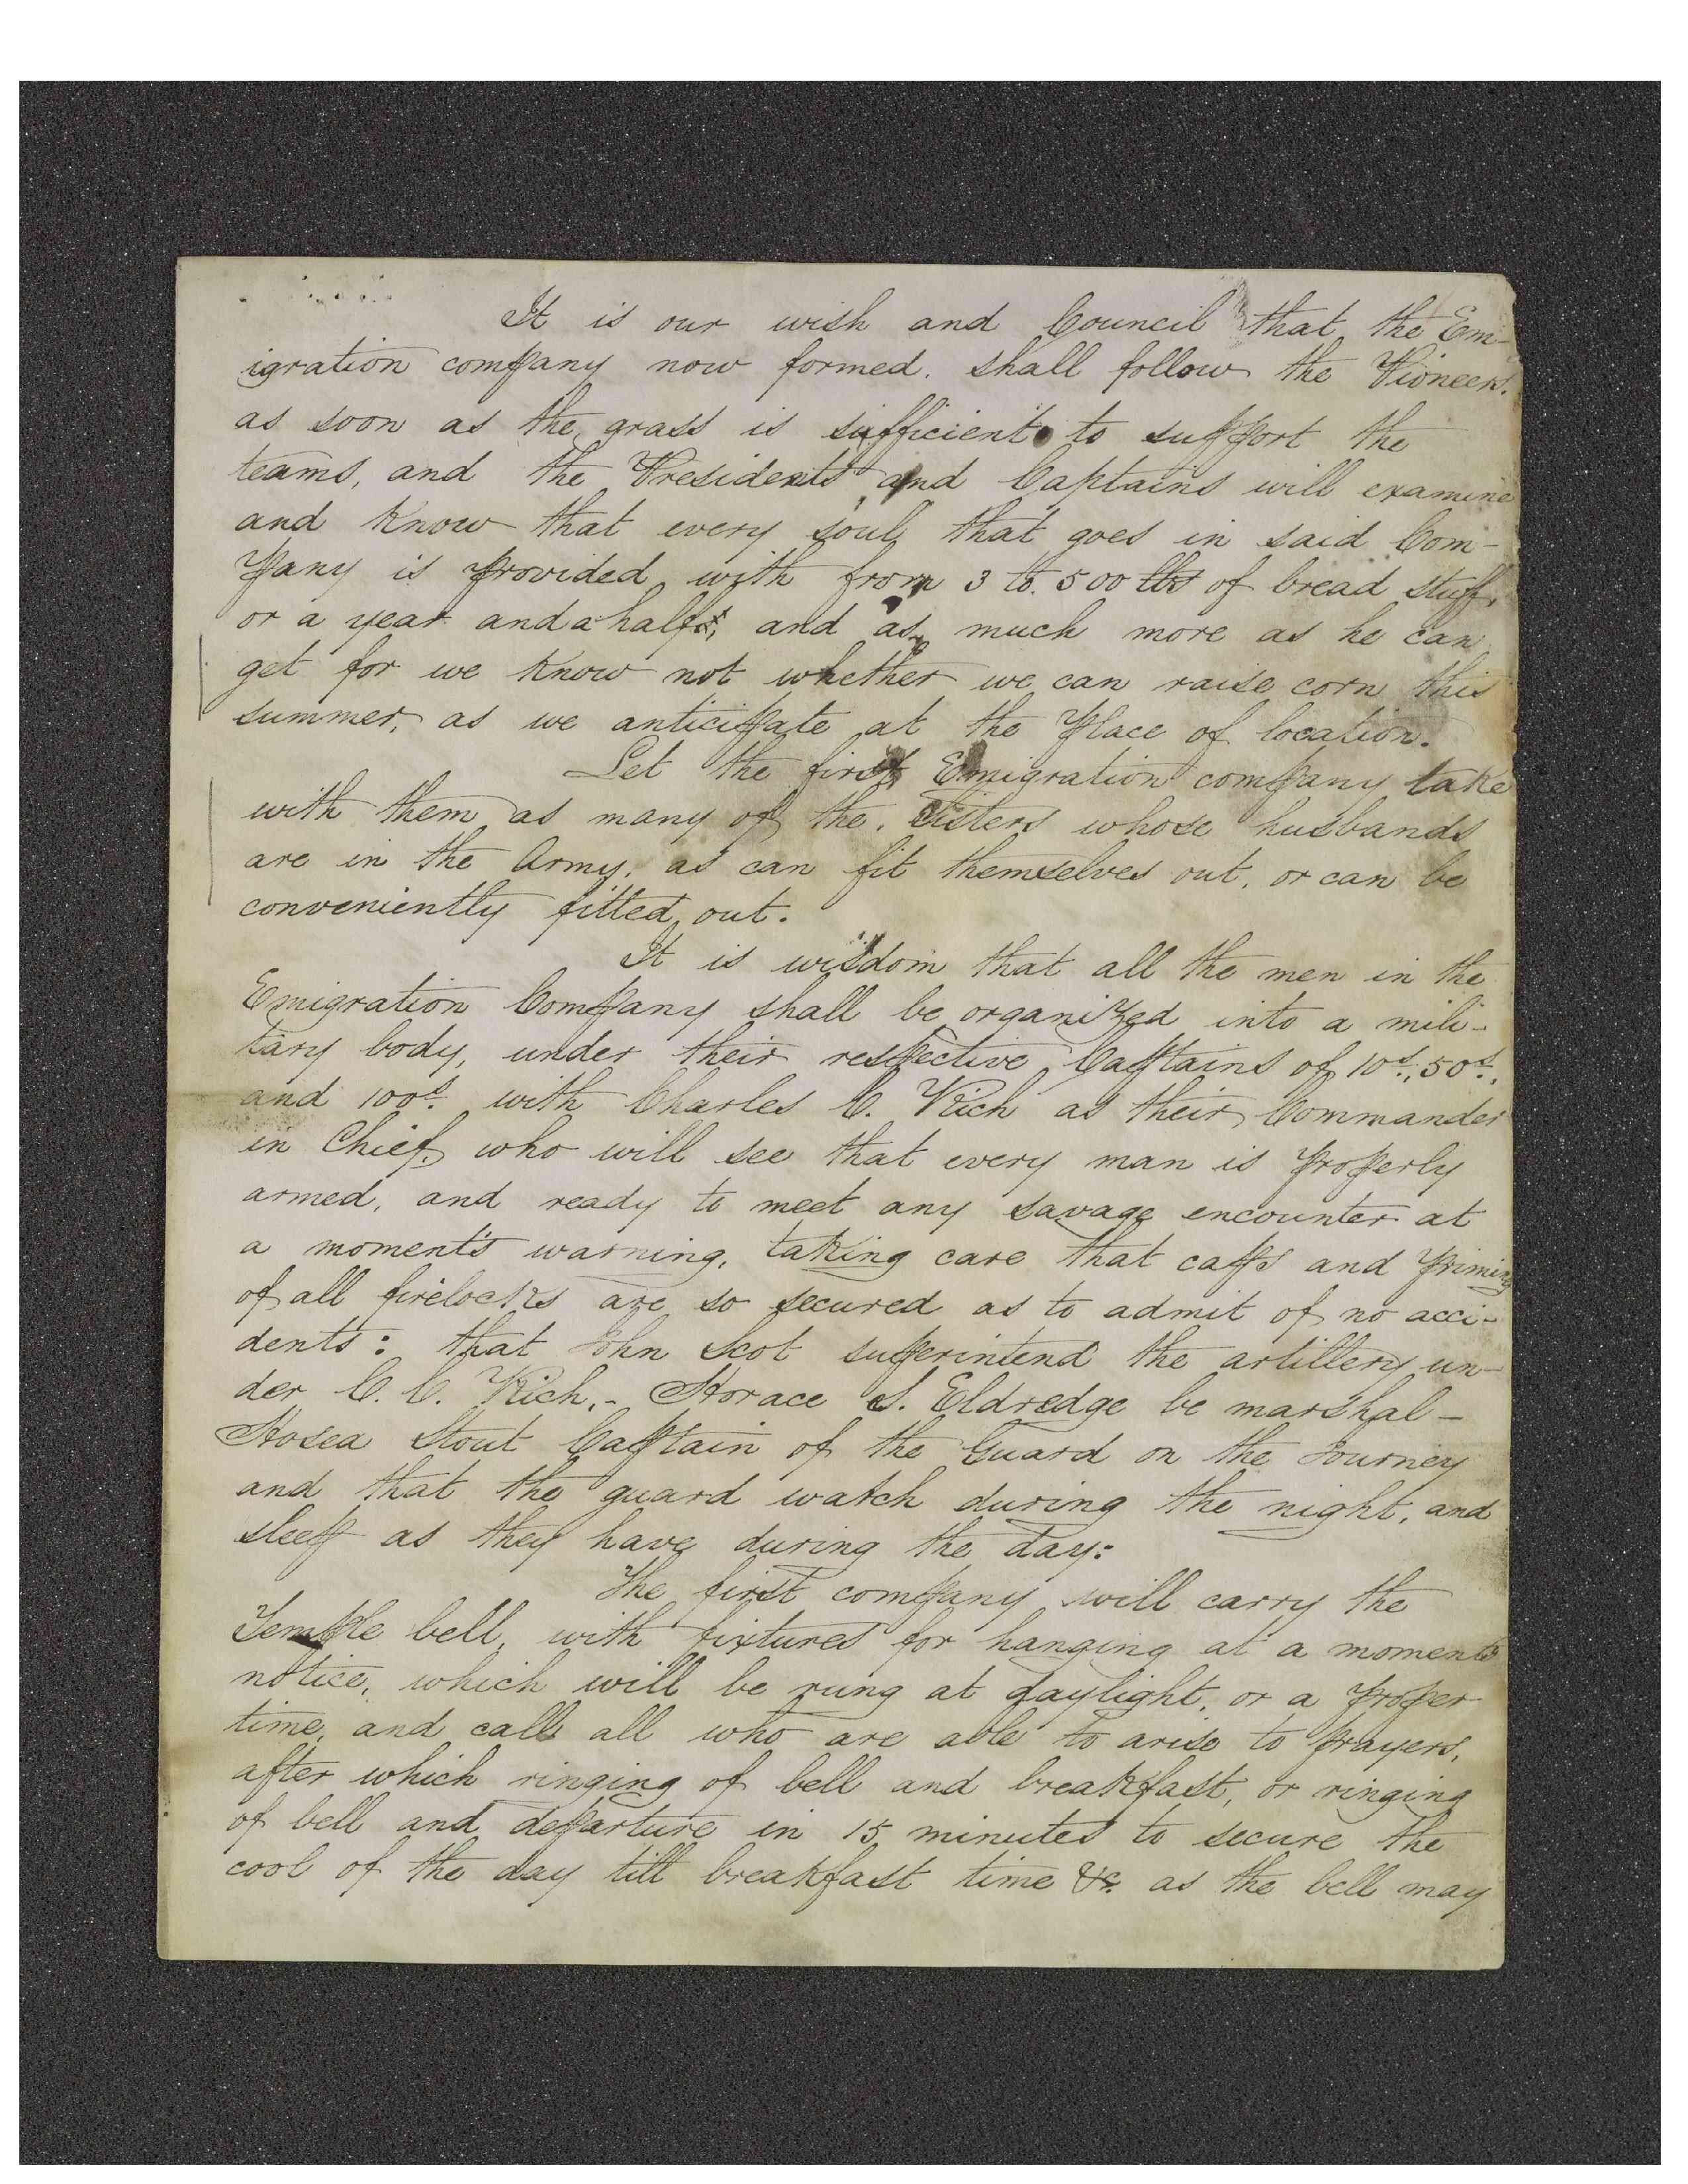 It is our wish and Council that the Em-
igration company now formed. shall follow the Pioneers.
as soon as the grass is sufficient to support the
teams, and the Presidents and Captains will examine
and know that every soul that goes in said Com-
pany is provided with from 3 to. 500 lbs of bread stuff,
or a year and a half's, and as much more as he can
get for we know not whether we can raise corn this
summer, as we anticipate at the place of location.
Let the first Emigration company take
with them as many of the. Sisters whose husbands
are in the Army, as can fit themselves out, or can be
conveniently fitted out.
It is wisdom that all the men in the
Emigration Company shall be organized into a mili-
tary body, under their respective Captains of 10s., 50s.,
and 100s. with Charles C. Rich as their Commander
in Chief, who will see that every man is properly
armed, and ready to meet any savage encounter at
a moment's warning, taking care that caps and priming
of all firelocks are so secured as to admit of no acci-
dents: that John Scot superintend the artillery un-
der C. C. Rich,- Horace S. Eldredge be marshal-
Hosea Stout Captain of the Guard on the Journey
and that the guard watch during the night, and
sleep as they have during the day:
The first company will carry the
Temple bell, with fixtures for hanging at a moments
notice, which will be rung at daylight, or a proper
time, and call all who are able to arise to prayers,
after which ringing of bell and breakfast, or ringing
of bell and departure in 15 minutes to secure the
cool of the day till breakfast time &c. as the bell may